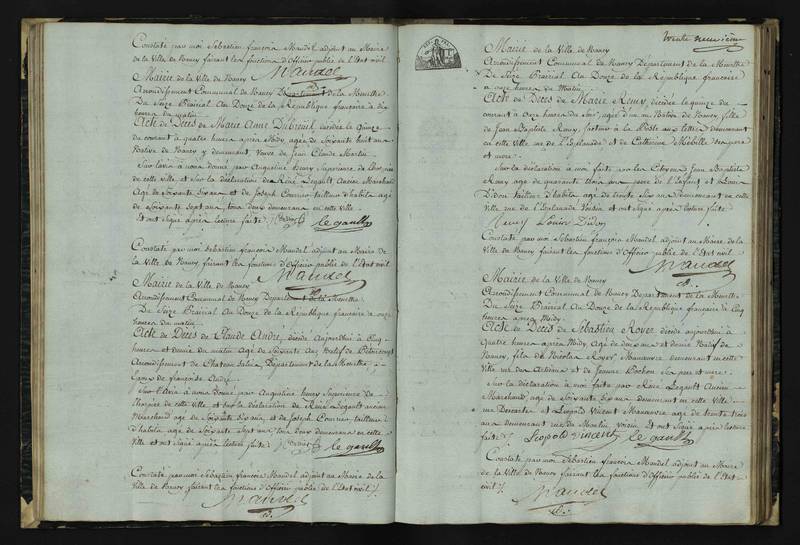 Constaté par moi Sébastien françois Mandel adjoint au Maire
de la Ville de Nancy faisant les fonctions d'Officier public de l'Etat civil
Mandel
Mairie de la Ville de Nancy
Arrondissement Communal de Nancy Département de la Meurthe
Du Seize Prairial An Douze de la République françoise à dix
heures du matin
Acte de Décès de Marie Anne Dubreuil, décédée le Quinze
du courant à quatre heures après Midy, agée de Soixante huit ans
Native de Nancy y demeurant Veuve de Jean Claude Martin
Sur l'avis à nous donné par Augustine henry Supérieure de
de cette ville, et sur la déclaration de René Legault Ancien Marchand
Agé de Soixante Six ans et de Joseph Courrier tailleur d'habits agé
de soixante Sept ans, tous deux demeurans en cette ville
Et ont signé après lecture faite
le gault
Constaté par moi Sébastien françois Mandel adjoint au Maire de
la Ville de Nancy faisant les fonctions d'Officier public de l'Etat civil
Mandel
Mairie de la Ville de Nancy
Arrondissement Communal de Nancy Département de la Meurthe
Du Seize Prairial An Douze de la République françoise à onze
heures du matin
Acte de Décès de Claude André, décédé Aujourd'hui à Cinq
heures et demie du matin Agé de Soixante Ans Natif de
Arrondissement de Chateau Salins, Département de la Meurthe
Epoux de françoise André
Sur l'Avis à nous donné par Augustine henry Supérieure de
l'hospice de cette ville et sur la déclaration de René Legault ancien
Marchand agé de Soixante Six ans, et de Joseph Courrier, tailleur
d'habits agé de soixante Sept ans, tous deux demeurans en cette
Ville et ont Signé après lecture faite
le gault
Constaté par moi Sébastien françois Mandel adjoint au Maire de la
Ville de Nancy faisant les fonctions d'Officier public de l'Etat civil
Mandel
trente neuvième
Mairie de la Ville de Nancy
Arrondissement Communal de Nancy Département de la Meurthe
Du Seize Prairial An Douze de la République françoise
à onze heures du Matin
Acte de Décès de Marie Remy, décédée le quinze du
courant à onze heures du Soir, agée d'un an Native de Nancy fille
de Jean Baptiste Remy, facteur à la Poste aux lettres demeurant
en cette Ville rue de l'Esplanade et de Catherine
et mere
Sur la déclaration à moi faite par les Citoyens Jean Baptiste
Remy agé de quarante trois ans pere de l'Enfant et Louis
Didon tailleur d'habits agé de trente Six ans demeurant en cette
Ville rue de l'Esplanade Voisin et ont signé après lecture faite
Remy Louis Didon
Constaté par moi Sébastien françois Mandel adjoint au Maire de la
Ville de Nancy faisant les fonctions d'Officier public de l'Etat civil
Mandel
Mairie de la Ville de Nancy
Arrondissement Communal de Nancy Département de la Meurthe
Du Seize Prairial An Douze de la République françoise à Cinq
heures après Midy
Acte de Décès de Sébastien Royer décédé aujourd'hui à
Quatre heures après Midy Agé de deux ans et demi Natif de
Nancy, fils de Nicolas Royer Manœuvre demeurant en cette
Ville rue des Artisans et de Jeanne Bochon Ses pere et mere
Sur la déclaration à moi faite par René Legault Ancien
Marchand, agé de Soixante Six ans demeurant en cette Ville
rue Descartes et Léopold Vincent Manœuvre agé de trente trois
ans demeurant rue du Moulin Voisin et ont signé après lecture
faite Leopold Vincent le gault
Constaté par moi Sébastien françois Mandel adjoint au Maire
de la Ville de Nancy faisant les fonctions d'Officier public de l'Etat
civil
Mandel